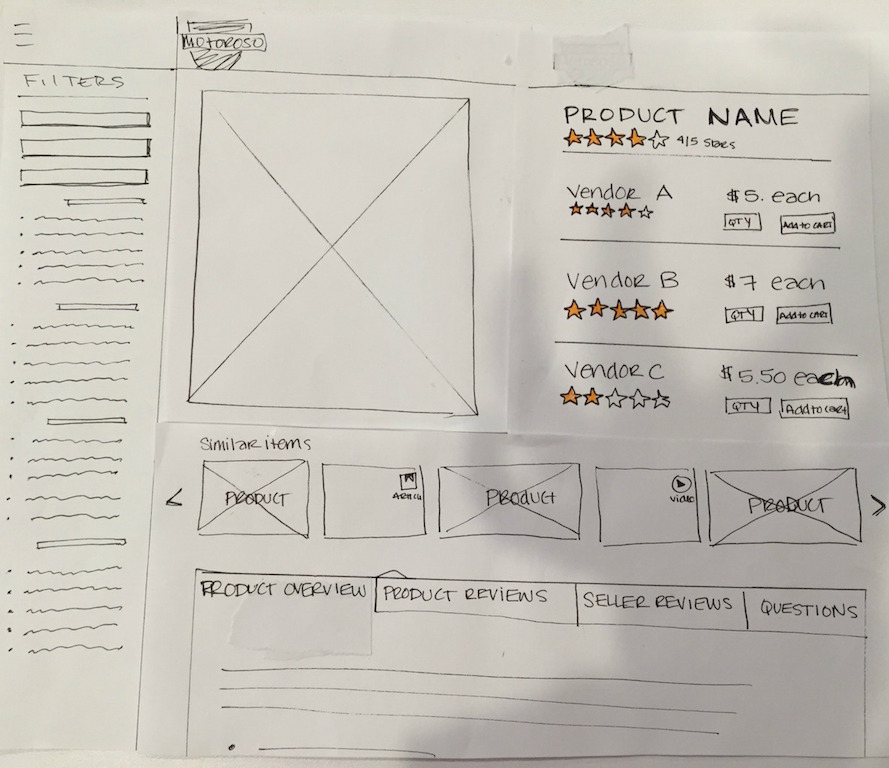 MOTOROSO
FILTERS
PRODUCT NAME
4/5 Stars
Vendor A
$5. each
QTY
Add to CART
Vendor B
$7 each
QTY
Add to CART
Vendor C
$5.50 each
QTY
Add to cart
Similar items
<
PRODUCT
ARTICLE
PRODUCT
VIDEO
PRODUCT
>
PRODUCT OVERVIEW
PRODUCT REVIEWS
SELLER REVIEWS
QUESTIONS